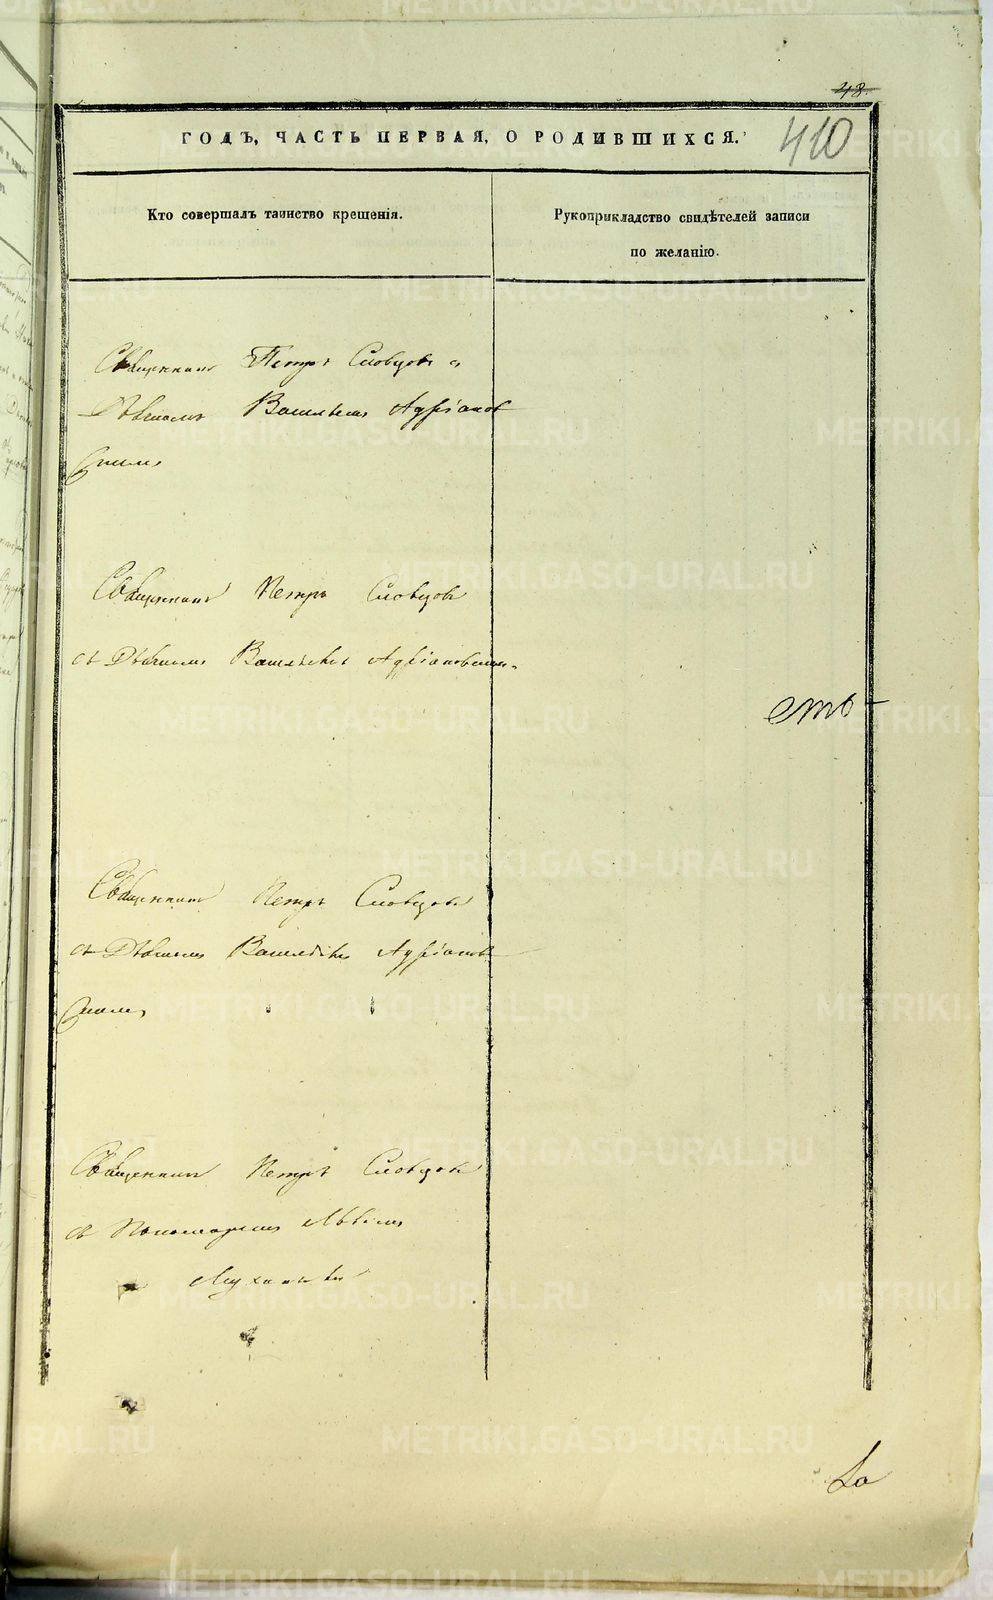 48.
ГОДЪ, ЧАСТЬ ПЕРВАЯ, О РОДИВШИХСЯ.
410
Кто совершалъ таинство крещенія.
Рукоприкладство свидѣтелей записи
по желанію.
Священникъ Петръ Словцовъ съ
Діякономъ Васильемъ Адріанов
скимъ
Священникъ Петръ Словцовъ
съ Діякономъ Васильемъ Адріановскимъ
Священникъ Петръ Словцовъ
съ Діякономъ Васильемъ Адріанов
скимъ
Священникъ Петръ Словцовъ
съ Пономаремъ
METRIKI.GASO-URAL.RU